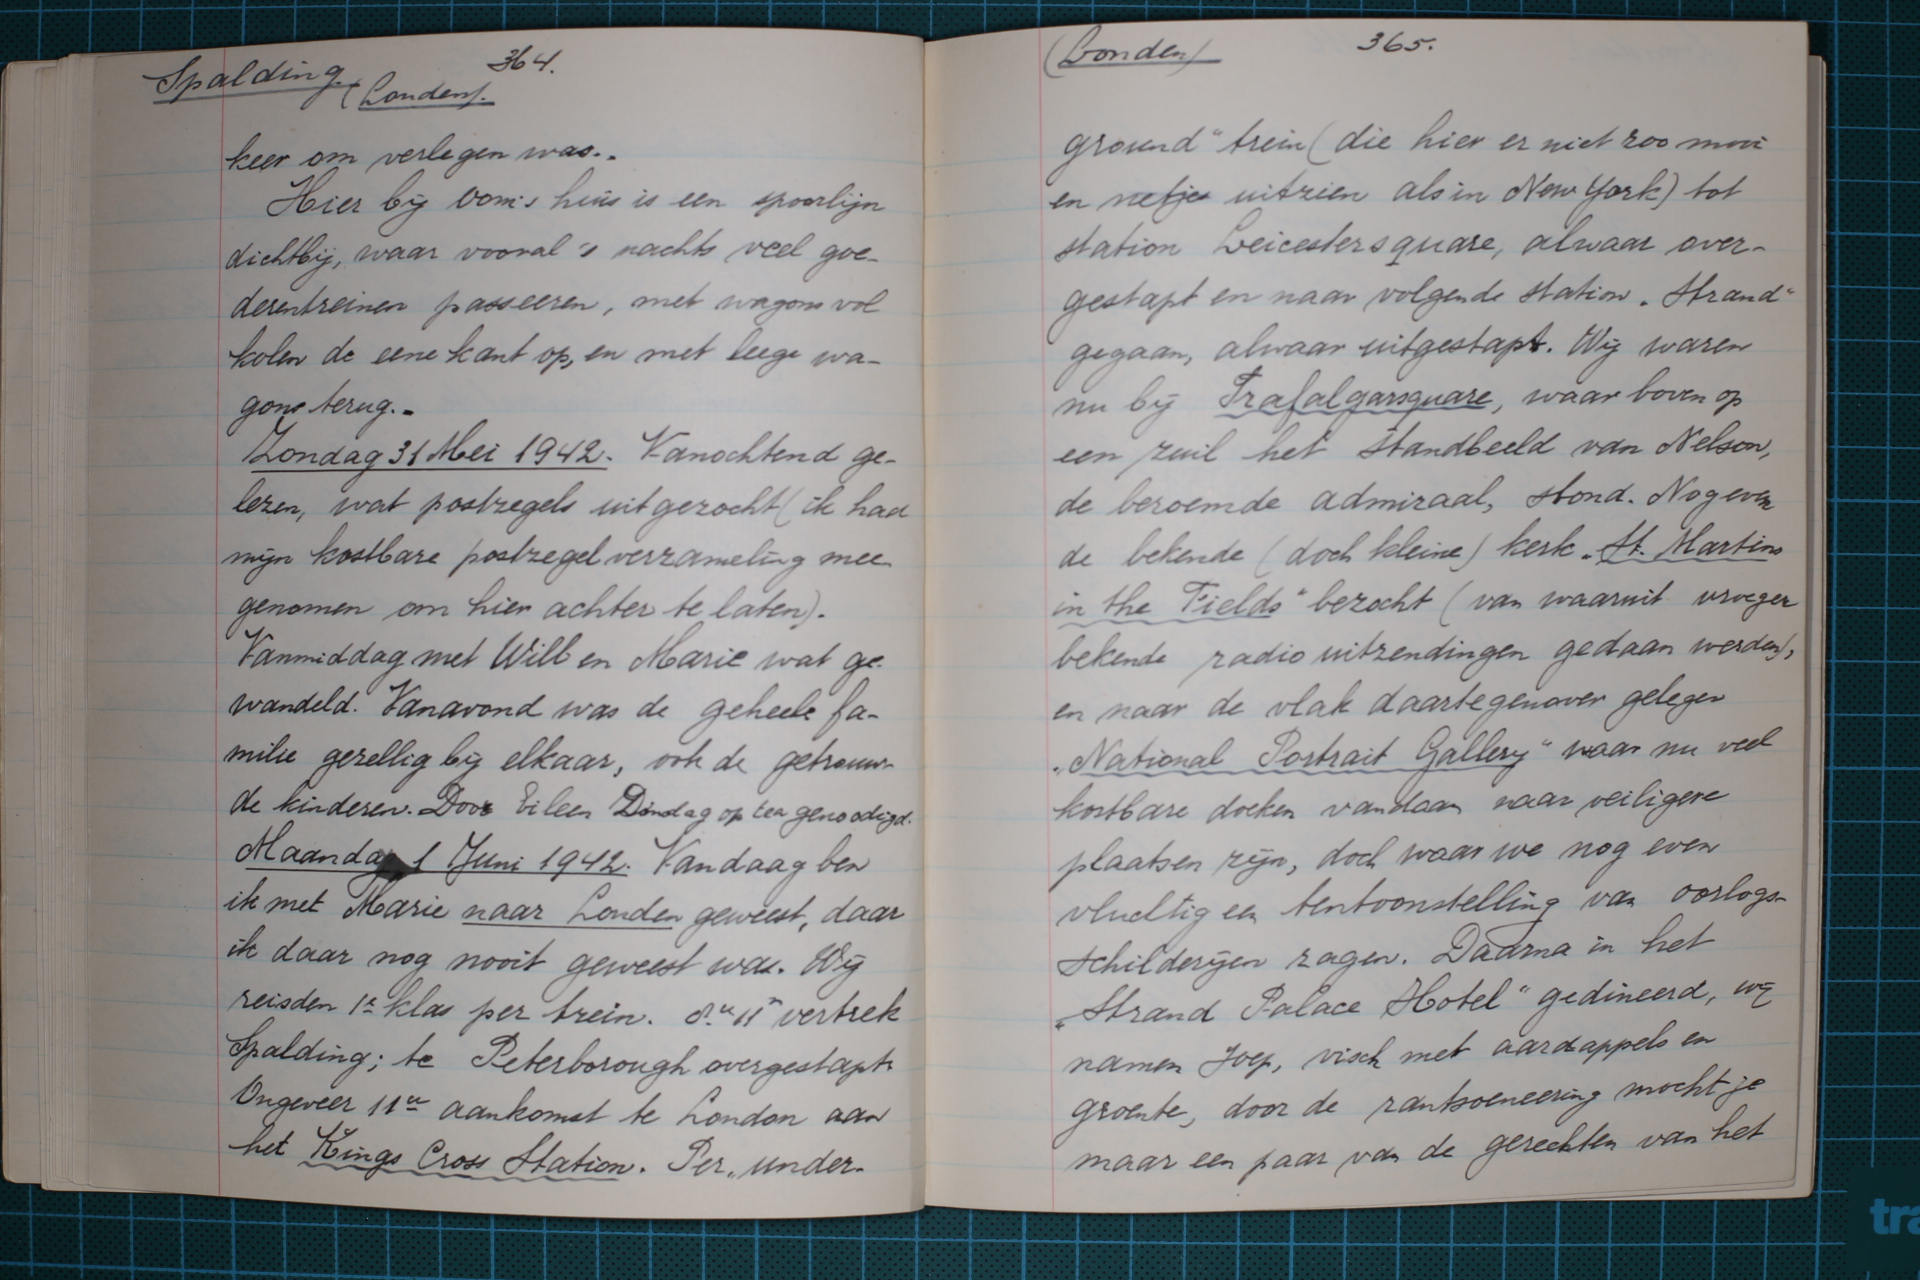 364.
Spalding
(Londen).
keer om verlegen was..
Hier bij Oom's huis is een spoorlijn
dichtbij, waar vooral 's nachts veel goe-
derentreinen passeeren, met wagons vol
kolen de eene kant op, en met leege wa-
gons terug.-
Zondag 31 Mei 1942. Vanochtend ge-
lezen, wat postzegels uitgezocht (ik had
mijn kostbare postzegelverzameling mee
genomen om hier achter te laten).
Vanmiddag met Will en Marie wat ge-
wandeld. Vanavond was de geheele fa-
milie gezellig bij elkaar, ook de getrouw-
de kinderen. Door Eileen Dinsdag op tea genoodigd.
Maandag 1 Juni 1942. Vandaag ben
ik met Marie naar Londen geweest, daar
ik daar nog nooit geweest was. Wij
reisden 1e klas per trein. 8.u 11m vertrek
Spalding; te Peterborough overgestapt.
Ongeveer 11 uu aankomst te London aan
het Kings Cross Station. Per „under-
(Londen)
365.
ground" trein (die hier er niet zoo mooi
en netjes uitzien als in New York) tot
station Leicestersquare, alwaar over-
gestapt en naar volgende station „Strand"
gegaan, alwaar uitgestapt. Wij waren
nu bij Trafalgarsquare, waar boven op
een zuil het standbeeld van Nelson,
de beroemde admiraal, stond. Nog even
de bekende (doch kleine) kerk „St. Martins
in the Fields" bezocht (van waaruit vroeger
bekende radio uitzendingen gedaan werden),
en naar de vlak daartegenover gelegen
„National Portrait Gallery" waar nu veel
kostbare doeken vandaan naar veiligere
plaatsen zijn, doch waar we nog even
vluchtig een tentoonstelling van oorlogs-
schilderijen zagen. Daarna in het
„Strand Palace Hotel" gedineerd, wij
namen soep, visch met aardappels en
groente, door de rantsoeneering mocht je
maar een paar van de gerechten van het
tra